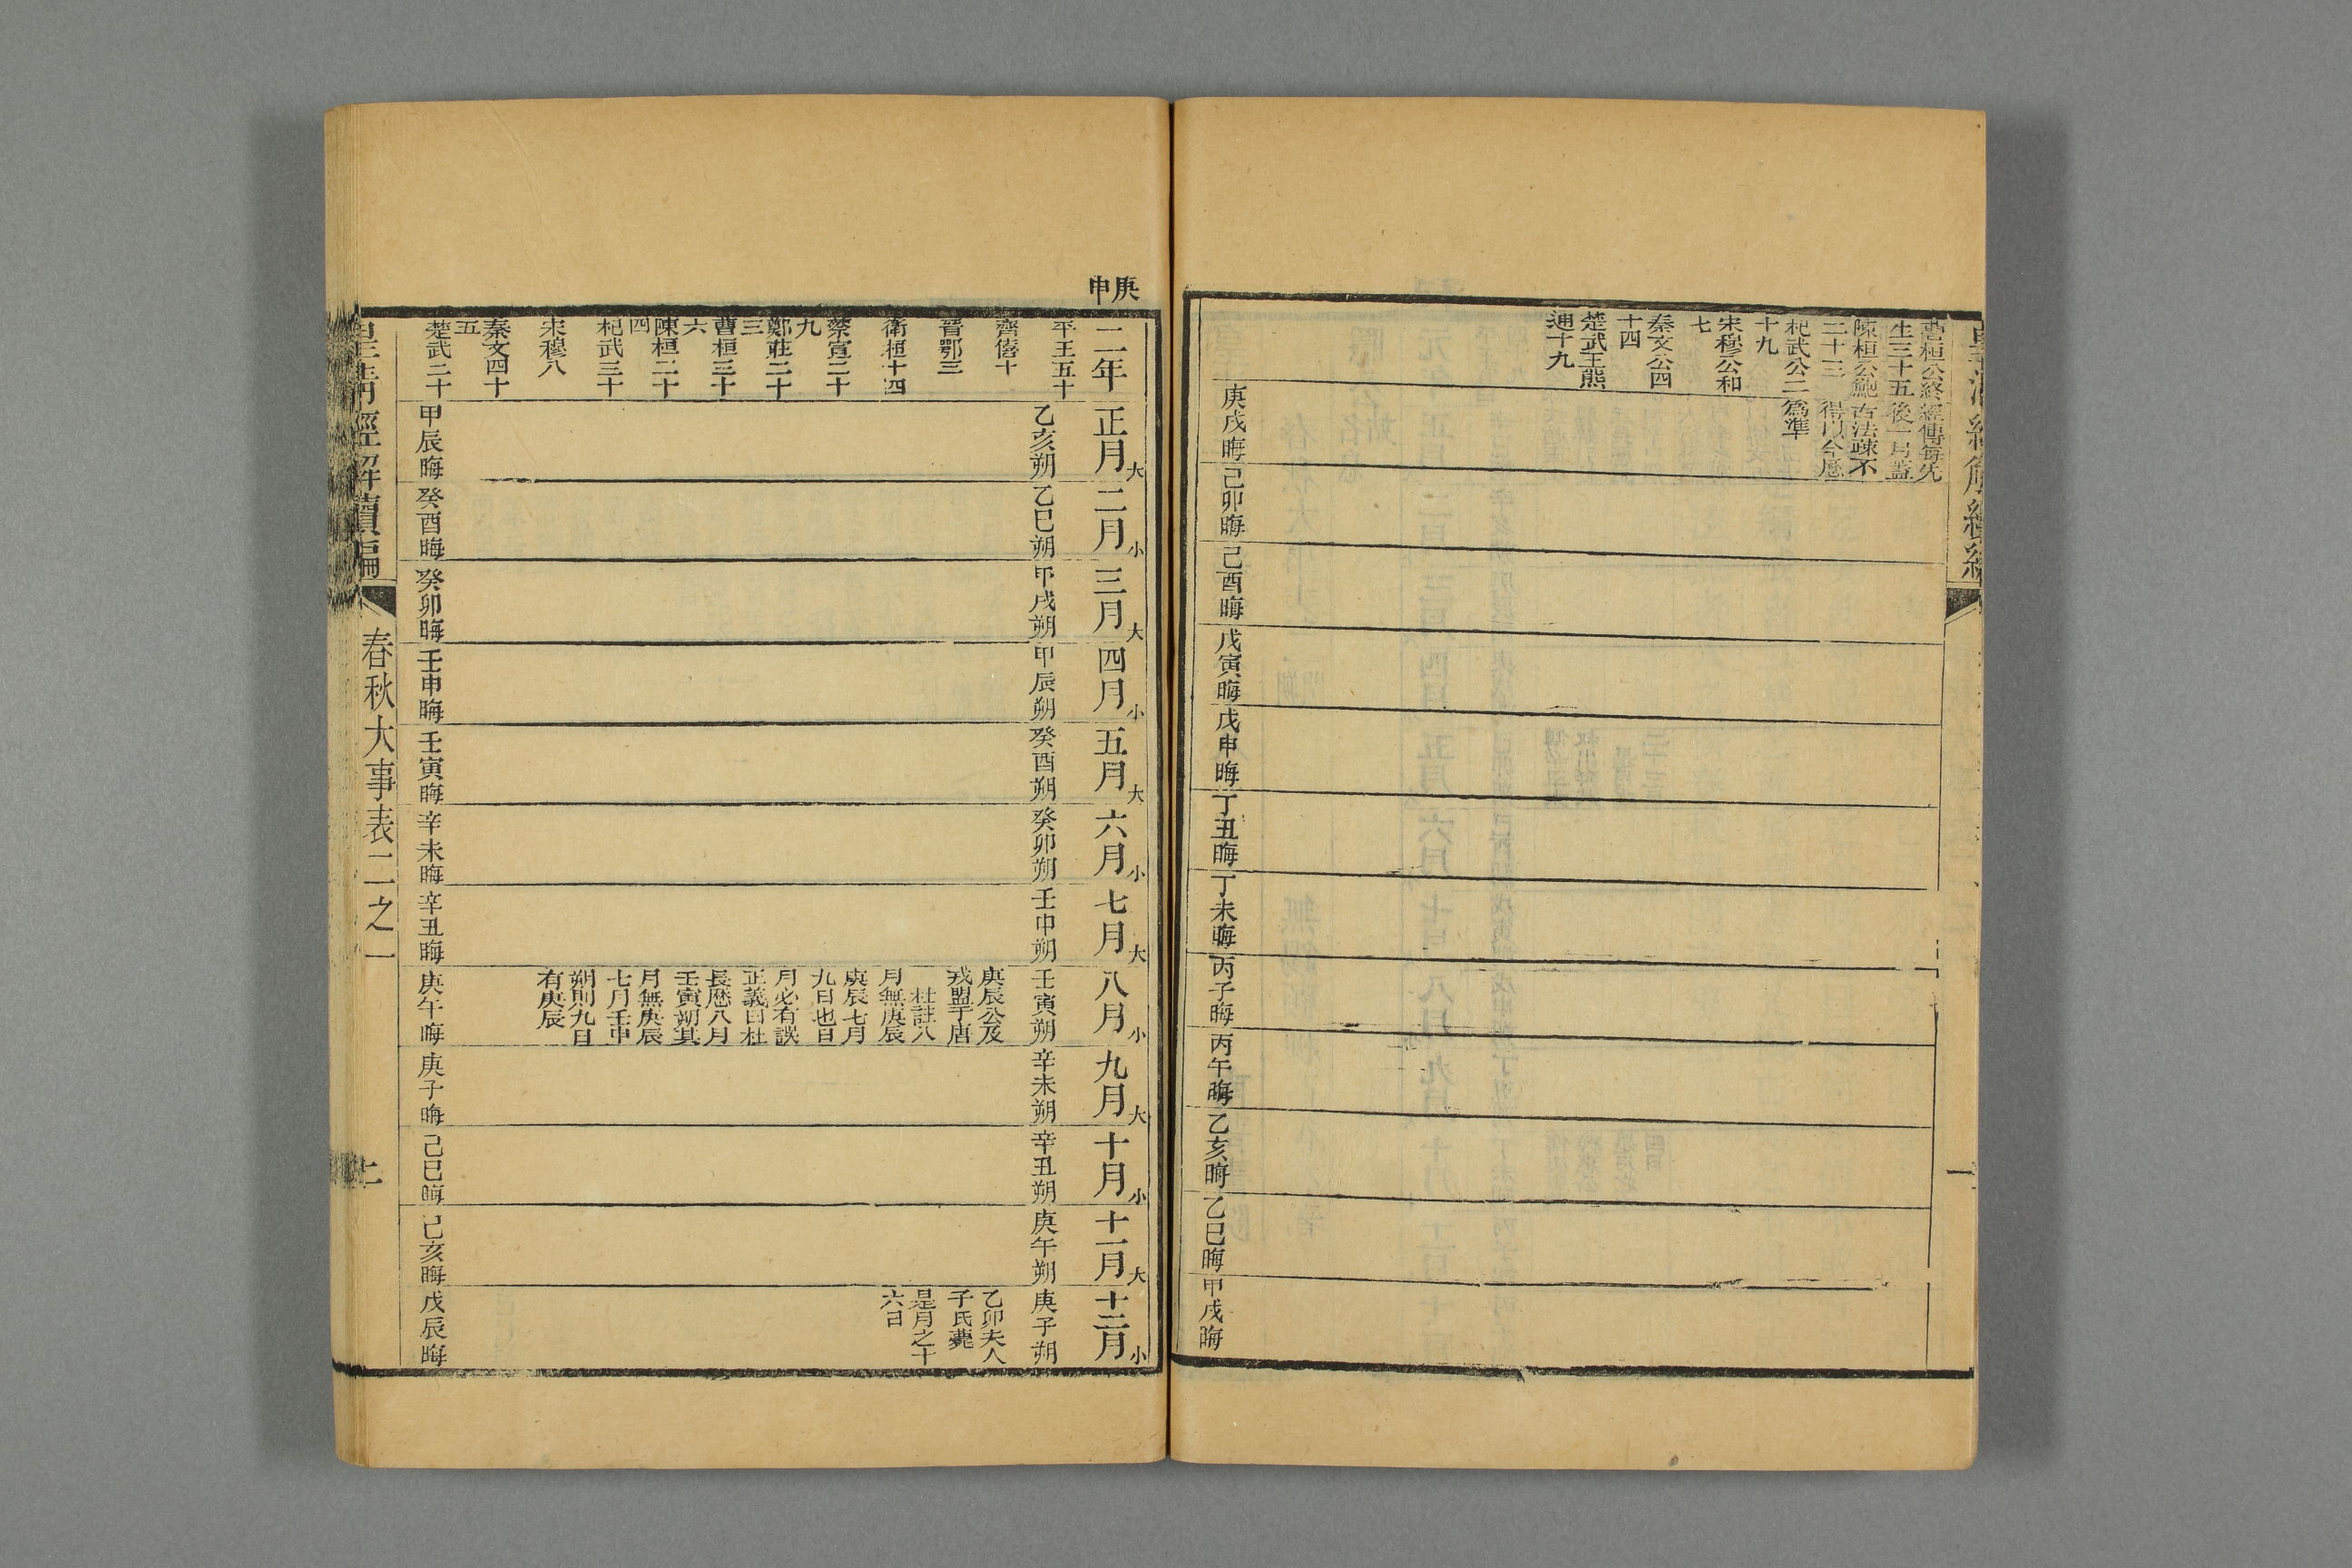 曹桓公終
生三十五
陳桓公鮑
二十三
杞武公二
十九
宋穆公和
七
秦文公四
十四
楚武王熊
通十九
經傳每先
後一月蓋
古法疎不
得以今厯
為準
庚戌晦
己卯晦
己酉晦
戊寅晦
戊申晦
丁丑晦
丁未晦
丙子晦
丙午晦
乙亥晦
乙巳晦
甲戌晦
庚申
二年
平王五十
齊僖十
晉鄂三
衛桓十四
蔡宣二十
九
鄭莊二十
三
曹桓三十
六
陳桓二十
四
杞武三十
宋穆八
秦文四十
五
楚武二十
正月大
乙亥朔
甲辰晦
二月小
乙巳朔
癸酉晦
三月大
甲戌朔
癸卯晦
四月小
甲辰朔
壬申晦
五月大
癸酉朔
壬寅晦
六月小
癸卯朔
辛未晦
七月大
壬申朔
辛丑晦
八月小
壬寅朔
庚辰公及
戎盟于唐
杜註八
月無庚辰
庚辰七月
九日也日
月必有誤
正義曰杜
長厯八月
壬寅朔其
月無庚辰
七月壬申
朔則九日
有庚辰
庚午晦
九月大
辛未朔
庚子晦
十月小
辛丑朔
己巳晦
十一月大
庚午朔
己亥晦
十二月小
庚子朔
乙卯夫人
子氏薨
是月之十
六日
戊辰晦
皇淸經解續編
春秋大事表二之一